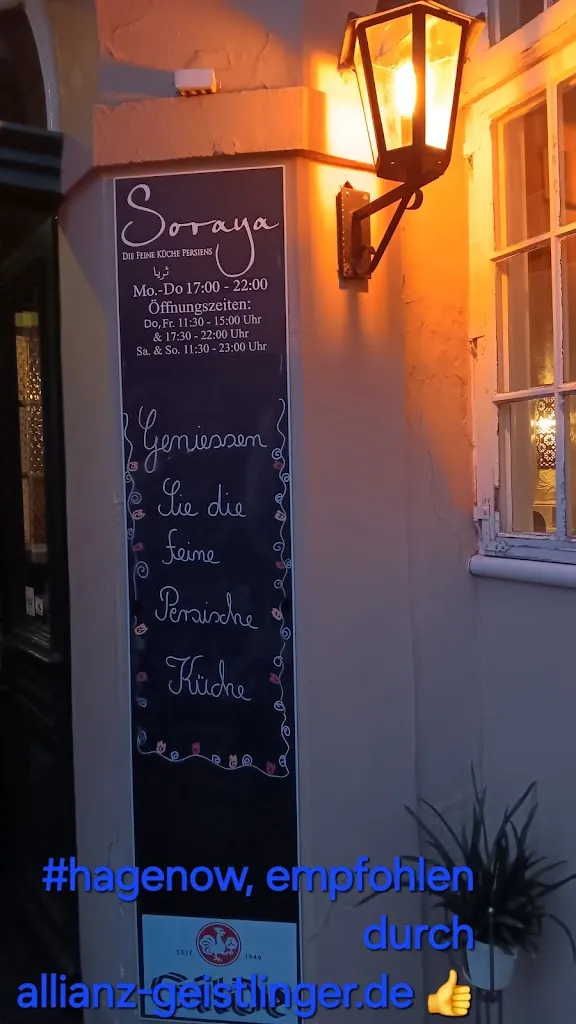 Soraya
DIE FEINE KÜCHE PERSIENS
ثريا
Mo.-Do 17:00 - 22:00
Öffnungszeiten:
Do, Fr. 11:30 - 15:00 Uhr
& 17:30 - 22:00 Uhr
Sa. & So. 11:30 - 23:00 Uhr
Geniessen
Sie die
feine
Persische
Küche
#hagenow, empfohlen
durch
SEIT 1846
allianz-geistlinger.de 👍